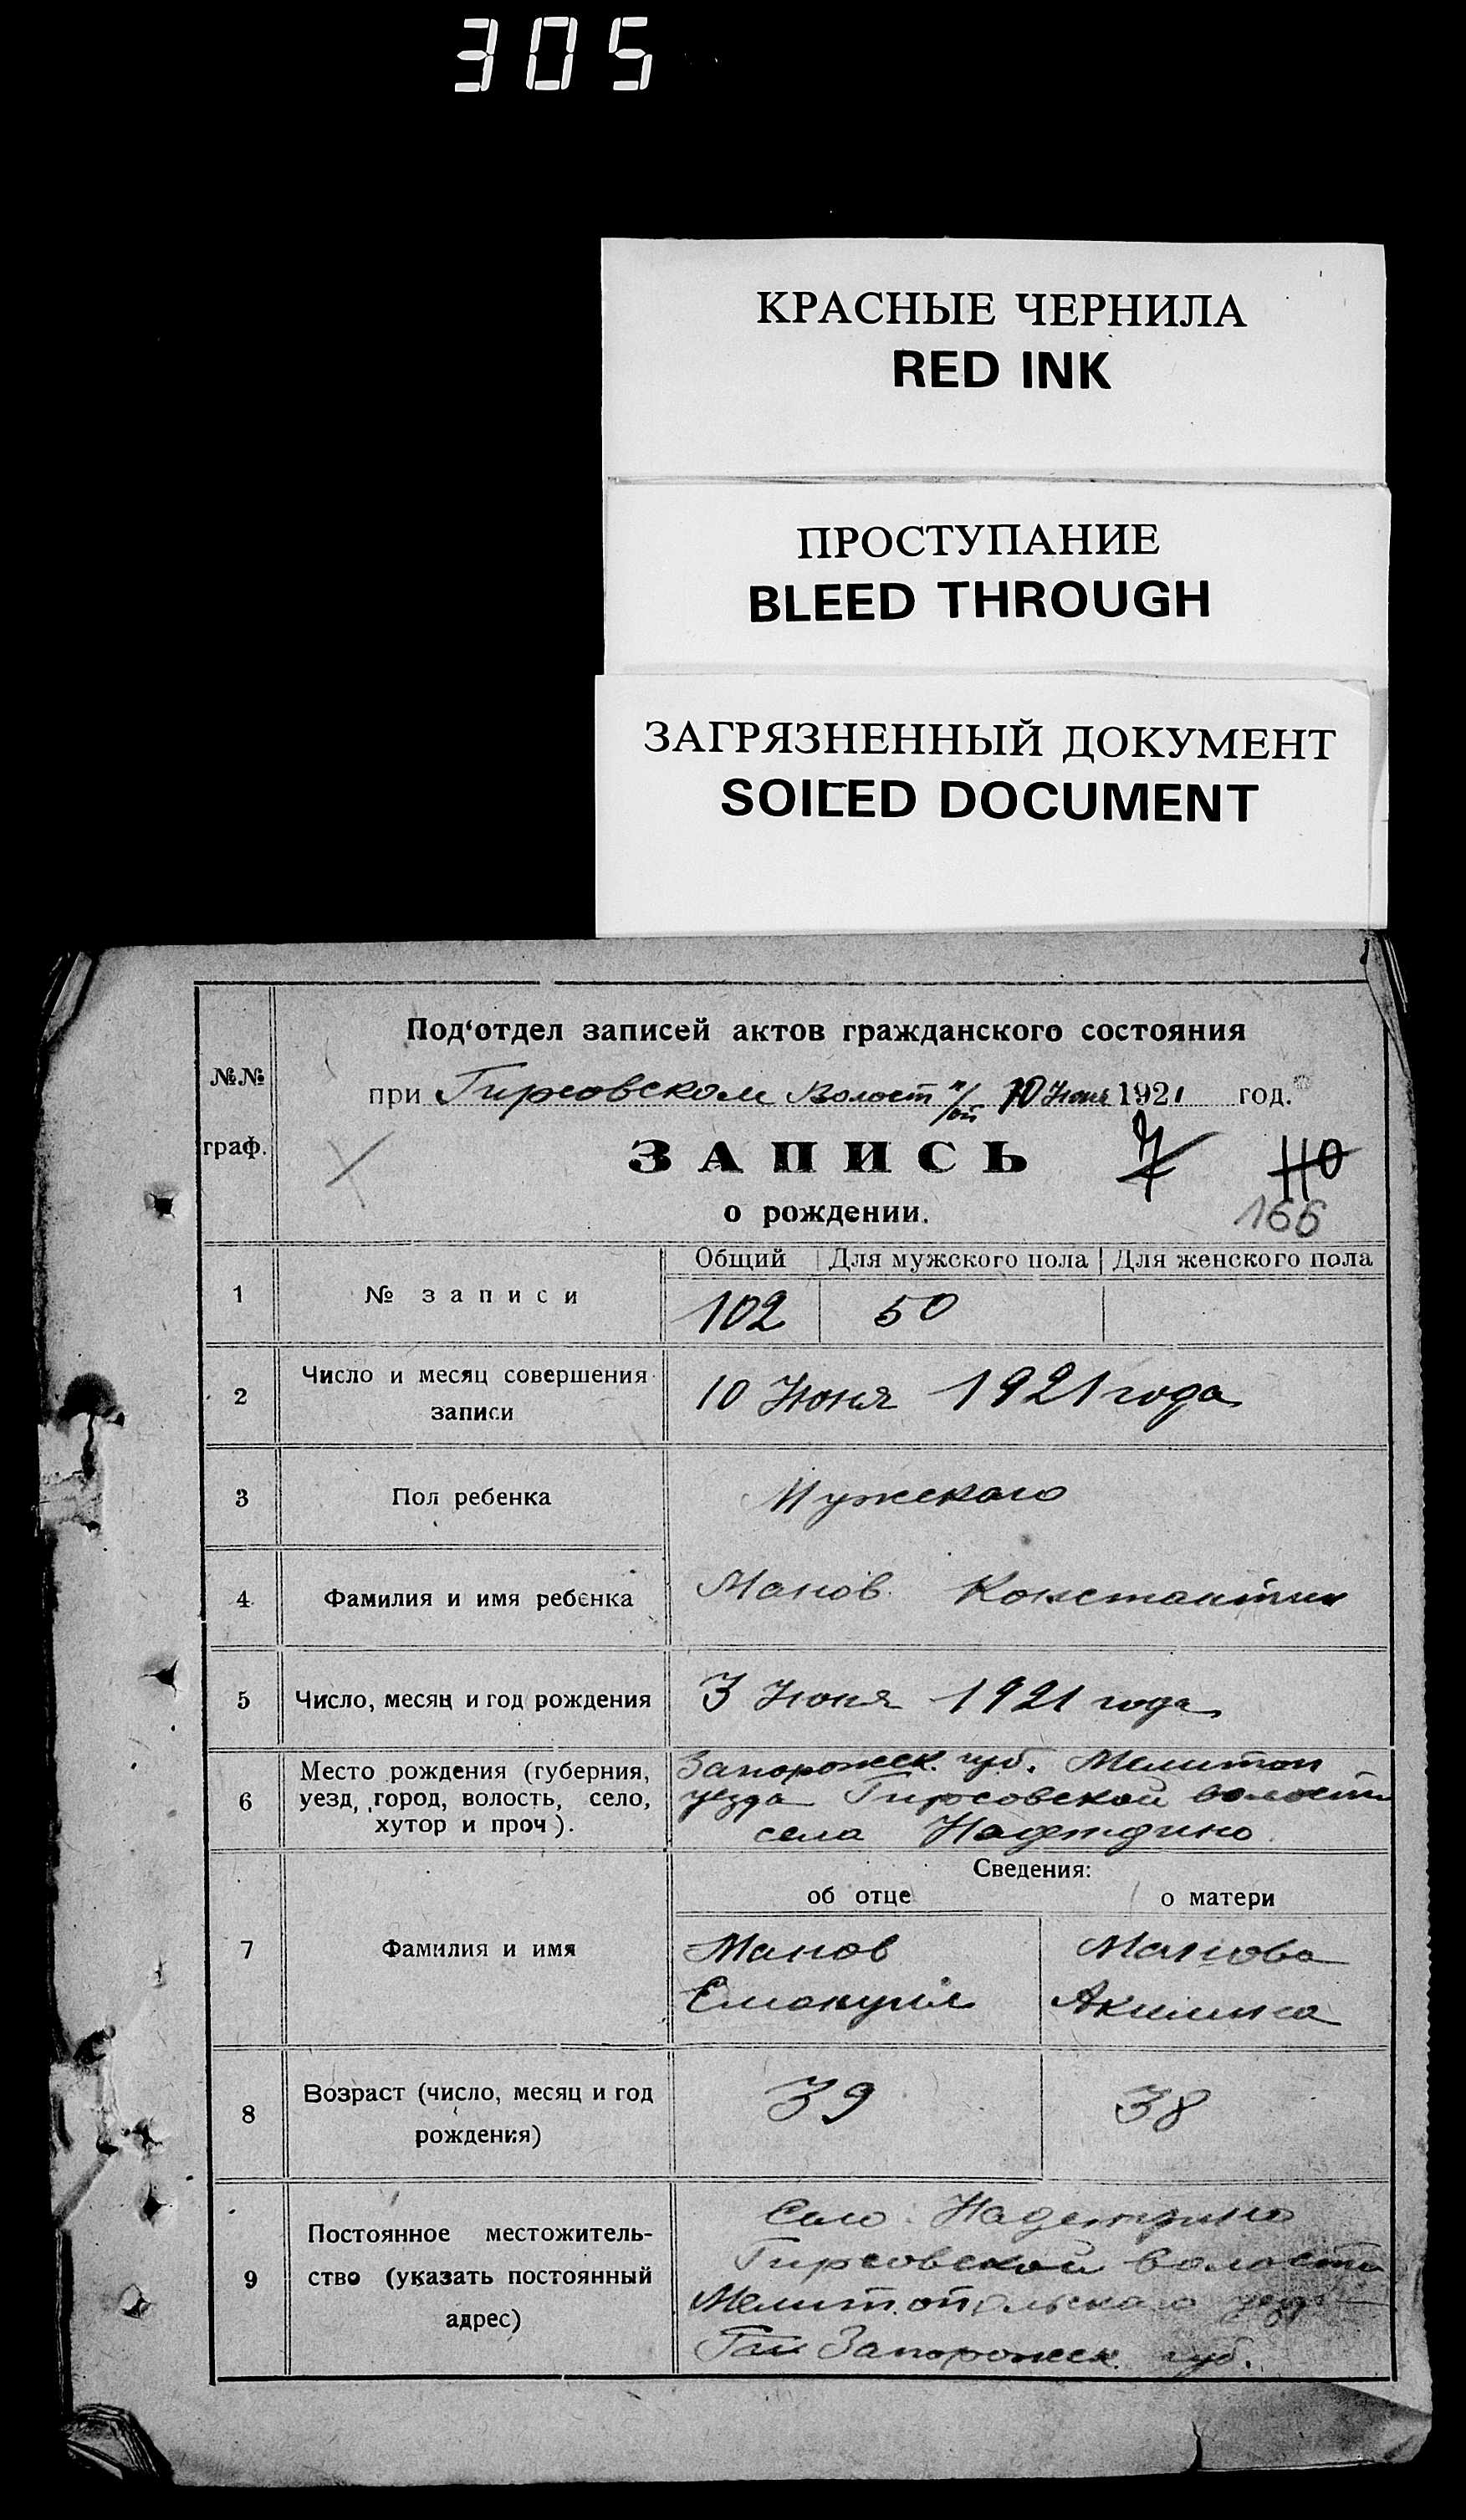 305
КРАСНЫЕ ЧЕРНИЛА
RED INK
ПРОСТУПАНИЕ
BLEED THROUGH
ЗАГРЯЗНЕННЫЙ ДОКУМЕНТ
SOILED DOCUMENT
№№ граф.
Под‘отдел записей актов гражданского состояния
при Гирсовском Волост 10 Июня 1921 год.
ЗАПИСЬ 7 110
о рождении. 166
Общий Для мужского пола Для женского пола
1 № записи 102 50
2 Число и месяц совершения
записи
10 Июня 1921 года
3 Пол ребенка Мужского
4 Фамилия и имя ребенка Манов Константин
5 Число, месяц и год рождения 3 Июня 1921 года
6 Место рождения (губерния,
уезд, город, волость, село,
хутор и проч).
Запорожск. губ. Мелитоп
уезда Гирсовской волости
села Надеждино
Сведения:
об отце о матери
7 Фамилия и имя
Манов Манова
Емануил Акилина
8 Возраст (число, месяц и год
рождения)
39 38
9 Постоянное местожитель-
ство (указать постоянный
адрес)
Село Надеждино
Гирсовской волости
Мелитопольского уезда
Запорожск. губ.